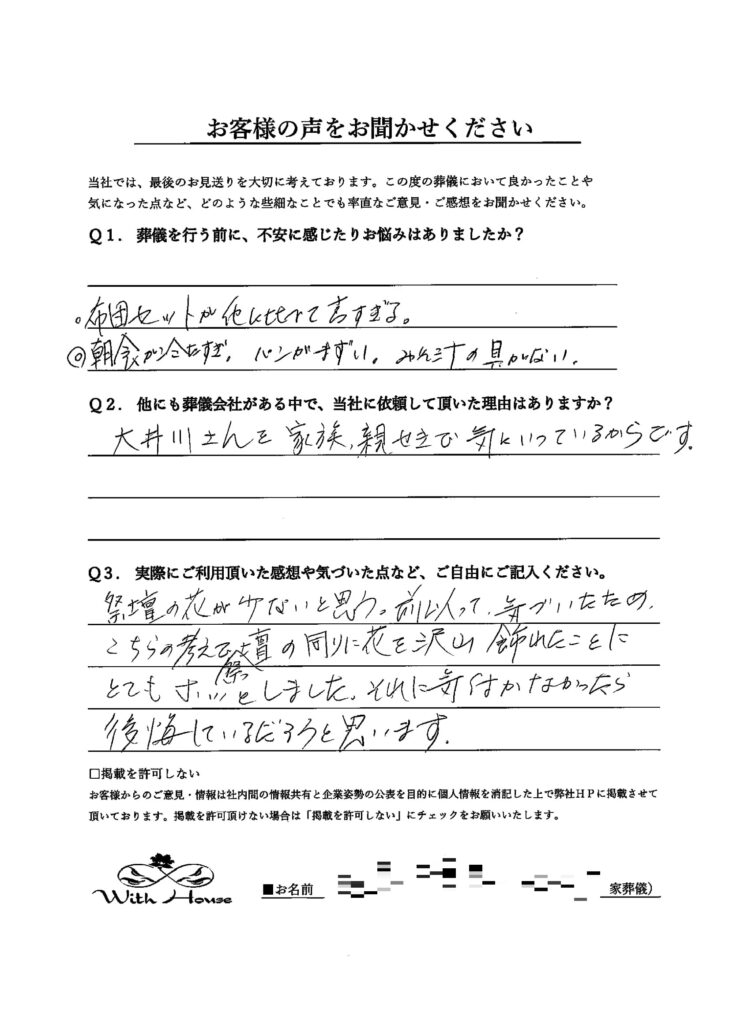 お客様の声をお聞かせください
当社では、最後のお見送りを大切に考えております。この度の葬儀において良かったことや
気になった点など、どのような些細なことでも率直なご意見・ご感想をお聞かせください。
Q1. 葬儀を行う前に、不安に感じたりお悩みはありましたか？
。布団セットが他に比べて高すぎる。
◎朝食が冷たすぎ。パンがまずい。みそ汁の具がない。
Q2. 他にも葬儀会社がある中で、当社に依頼して頂いた理由はありますか？
大井川さんを家族、親せきで気にいっているからです。
Q3. 実際にご利用頂いた感想や気づいた点など、ご自由にご記入ください。
祭壇の花が少ないと思う。前以って、気づいたため、
こちらの考えで祭壇の回りに花を沢山飾れたことに
とてもホッとしました。それに気付かなかったら
後悔しているだろうと思います。
□掲載を許可しない
お客様からのご意見・情報は社内間の情報共有と企業姿勢の公表を目的に個人情報を消記した上で弊社HPに掲載させて
頂いております。掲載を許可頂けない場合は「掲載を許可しない」にチェックをお願いいたします。
With House
■お名前 家葬儀）